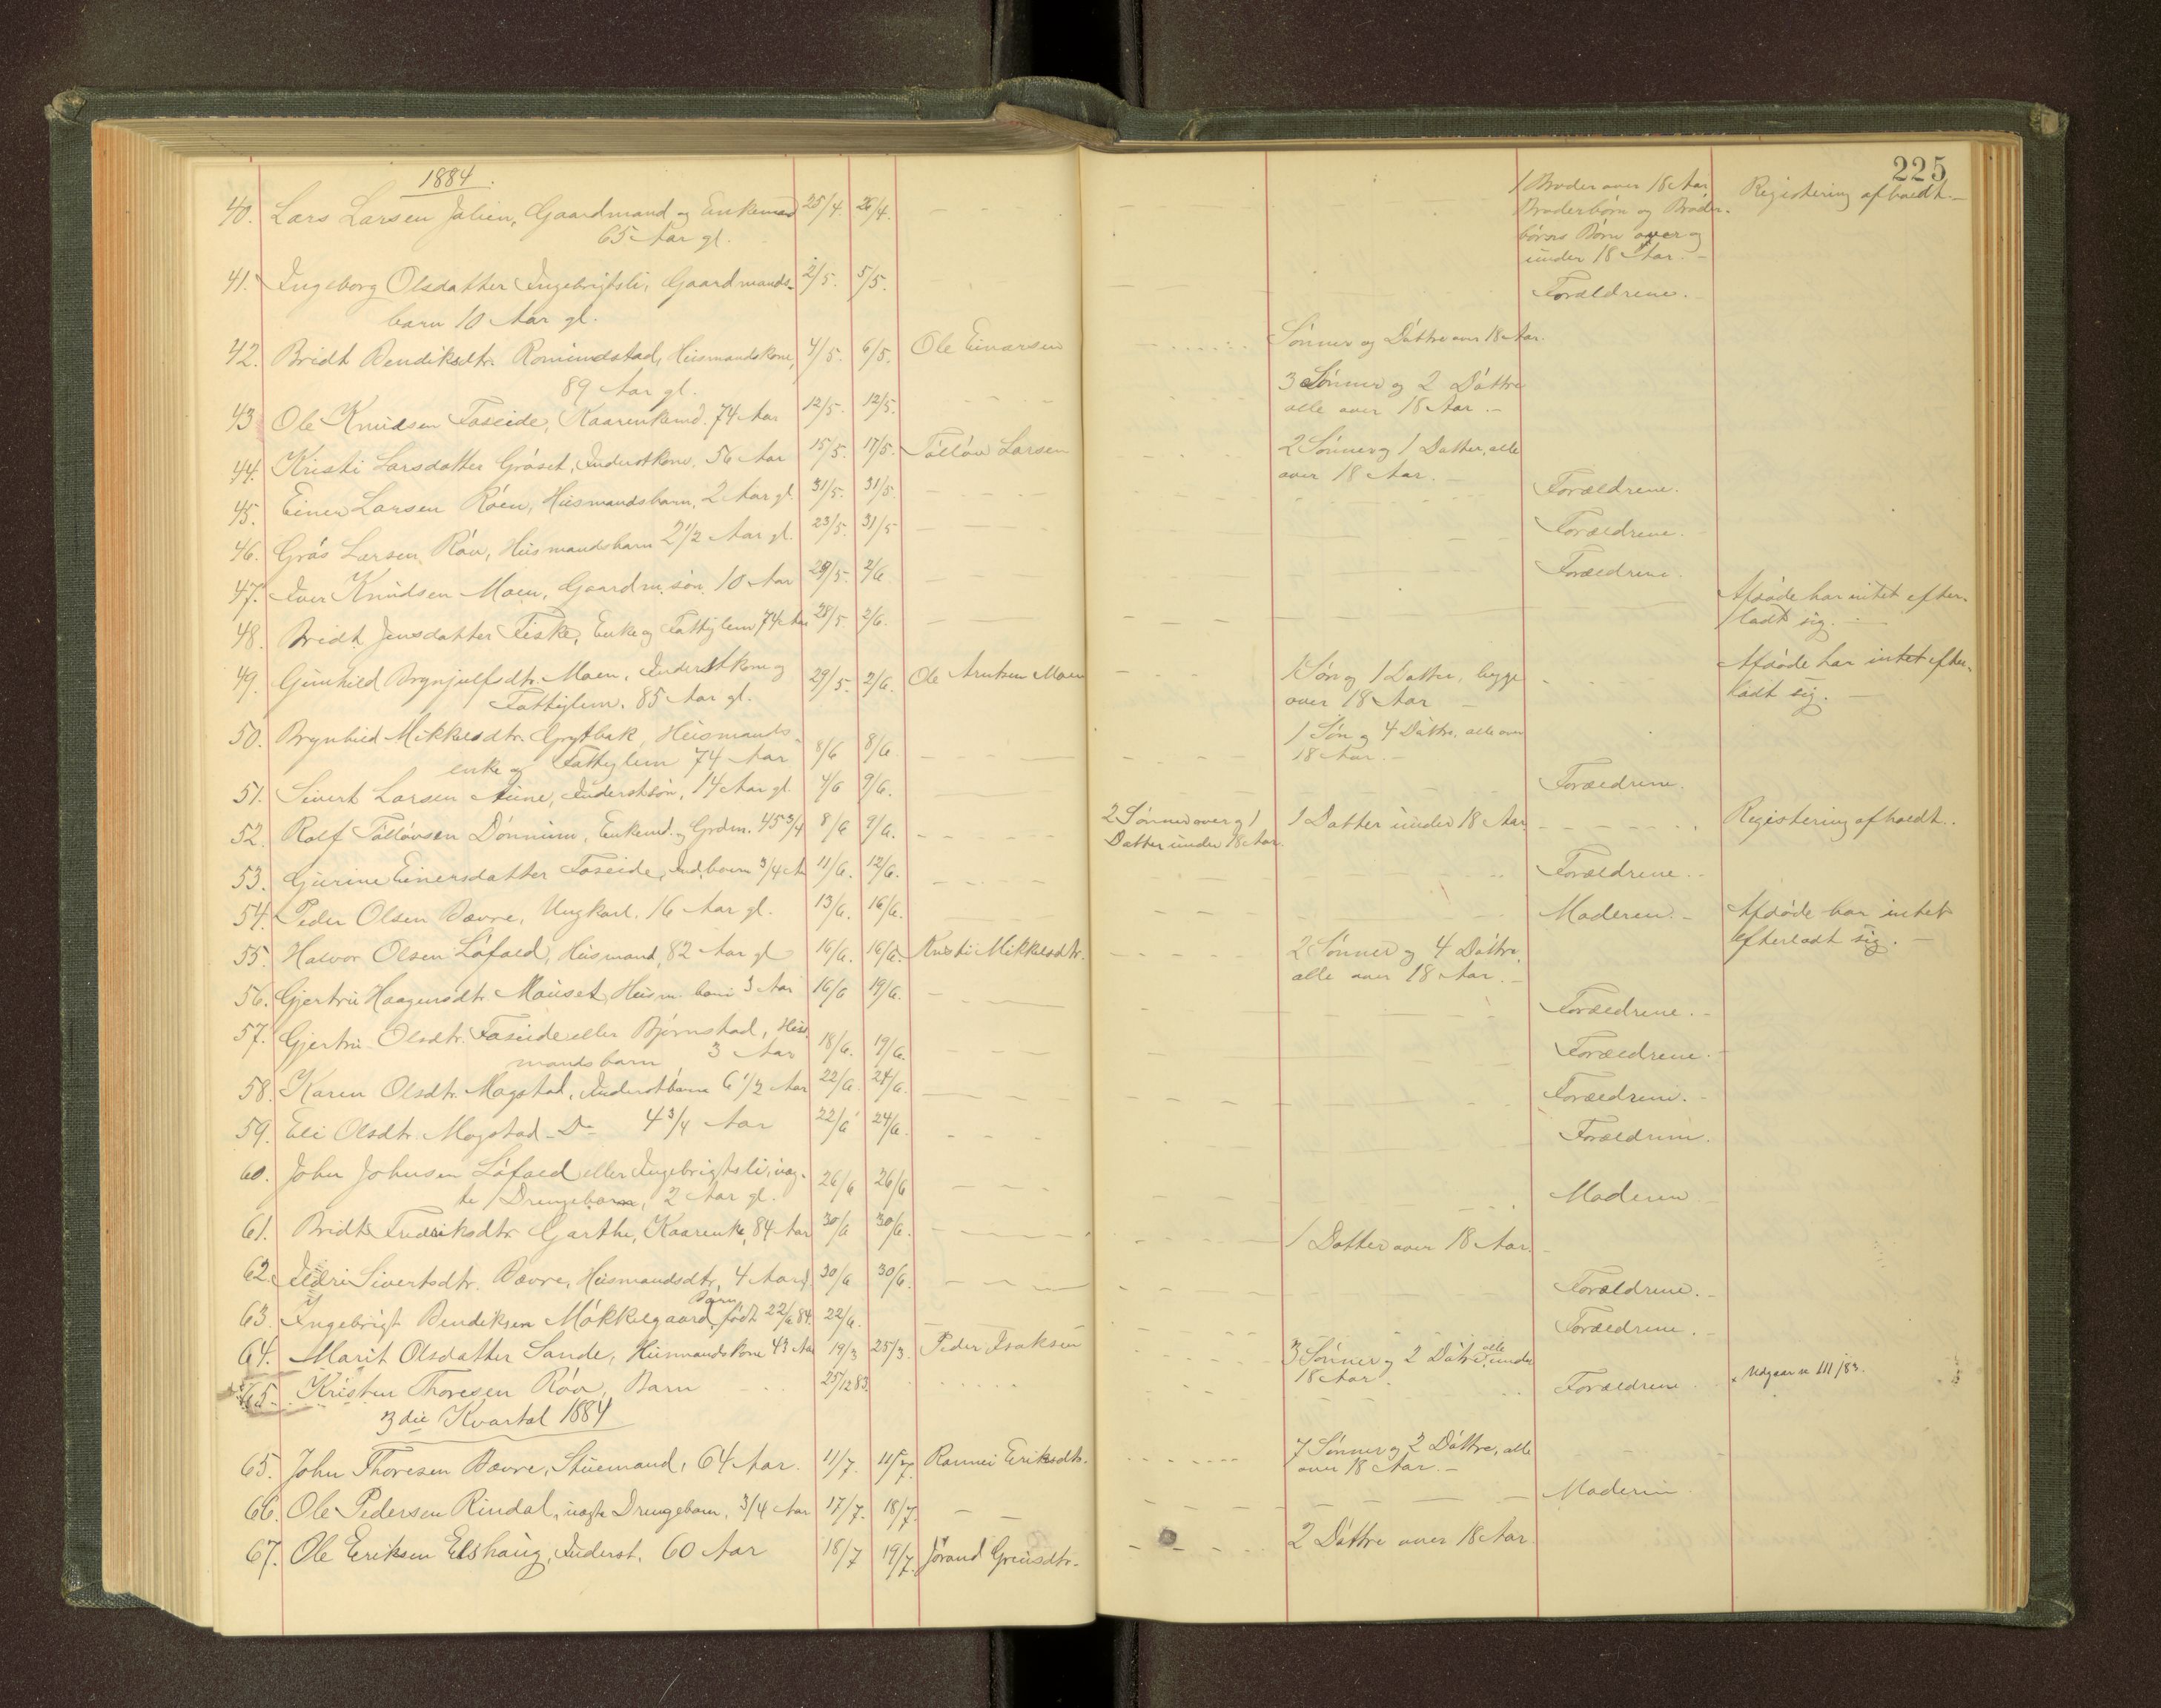 225
1884.
40. Lars Larsen Jalien, Gaardmand og Enkemand 25/4. 26/4. 1 Broder over 18 Aar, Registering afholdt.
65 Aar gl. Broderbörn og Broder-
börns Börn over og
under 18 Aar.
41. Ingeborg Olsdatter Ingebrigtsli, Gaardmands- 2/5. 5/5. Forældrene.
barn 10 Aar gl.
42. Bridt Bendiksdtr. Romundstad, Husmandskone, 4/5. 6/5. Ole Einarsen Sönner og Döttre over 18 Aar.
89 Aar gl.
43 Ole Knudsen Foseide, Kaarenkemd. 74 Aar 12/5. 12/5. 3 Sönner og 2 Döttre
alle over 18 Aar.
44. Kristi Larsdatter Gröset, Inderstkone, 56 Aar 15/5. 17/5. Tollöv Larsen 2 Sönner og 1 Datter, alle
over 18 Aar.
45. Einer Larsen Röen, Husmandsbarn, 2 Aar gl. 31/5. 31/5. Forældrene.
46. Grös Larsen Röv, Husmandsbarn 2 1/2 Aar gl. 23/5. 31/5 Forældrene.
47. Iver Knudsen Moen, Gaardm. sön. 10 Aar 29/5. 2/6 Forældrene.
48. Bridt Jensdatter Fiske, Enke og Fattiglem 74 Aar 28/5. 2/6. Afdöde har intet efter-
ladt sig.
49. Gunhild Brynjulfsdtr. Moen, Inderstkone og 29/5. 2/6. Ole Arntsen Moen 1 Sön og 1 Datter, begge Afdöde har intet efter-
Fattiglem. 85 Aar gl. over 18 Aar ladt sig.
50. Brynhild Mikkelsdtr. Grytbak, Husmands- 8/6 8/6. 1 Sön og 4 Döttre, alle over
enke og Fattiglem 74 Aar 18 Aar.
51. Sivert Larsen Aune, Inderstsön, 14 Aar gl. 4/6 9/6. Forældrene.
52. Rolf Tollövsen Dönnum, Enkemd. og Grdm. 45 3/4 8/6 9/6. 2 Sönner over og 1 1 Datter under 18 Aar Registering afholdt.
Datter under 18 Aar.
53. Gurine Einersdatter Foseide, Ind.barn 3/4 A 11/6. 12/6. Forældrene.
54. Peder Olsen Bævre, Ungkarl, 16 Aar gl. 13/6. 16/6. Moderen. Afdöde har intet
efterladt sig.
55. Halvor Olsen Löfald, Husmand, 82 Aar gl 16/6. 16/6. Kristi Mikkelsdtr. 2 Sönner og 4 Döttre,
alle over 18 Aar.
56. Gjertru Haagensdtr. Mauset, Husm. barn 3 Aar 16/6 19/6. Forældrene.
57. Gjertru Olsdtr. Foseide eller Bjørnstad, Hus- 18/6. 19/6. Forældrene.
mandsbarn 3 Aar
58. Karen Olsdtr. Mogstad, Inderstbarn 6 1/2 Aar 22/6 24/6. Forældrene.
59. Eli Olsdtr. Mogstad Do 4 3/4 Aar 22/6 24/6. Forældrene.
60. John Johnsen Löfald eller Ingebrigtsli, uæg- 26/6 26/6 Moderen
te Drengebarn, 2 Aar gl.
61. Bridt Fredriksdtr Garthe, Kaarenke, 84 Aar 30/6 30/6. 1 Datter over 18 Aar.
62. Ildri Sivertsdtr. Bævre, Husmandsdtr, 4 Aar 30/6 30/6. Forældrene.
63. Ingebrigt Bendiksen Mökkelgaard, Barn, födt 22/6 84. 22/6. Forældrene.
64. Marit Olsdatter Sande, Husmandskone 43 Aar 19/3 25/3. Peder Isaksen 3 Sönner og 2 Döttre, alle under
18 Aar.
65. Kristen Thoresen Röv, Barn 25/12 83. Forældrene Udgaar se 111/83.
3die Kvartal 1884
65. John Thoresen Bævre, Stuemand, 64 Aar. 11/7. 11/7. Rannei Eriksdtr. 7 Sönner og 2 Döttre, alle
over 18 Aar.
66. Ole Pedersen Rindal, uægte Drengebarn, 3/4 Aar 17/7. 18/7. Moderen
67. Ole Eriksen Elshaug, Inderst, 60 Aar 18/7 19/7. Jörand Greusdtr. 2 Döttre over 18 Aar